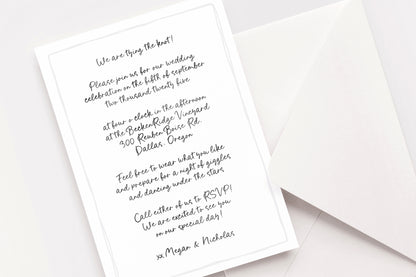 We are tying the knot!
Please join us for our wedding
celebration on the fifth of september
two thousand twenty five
at four o clock in the afternoon
at the BeckenRidge Vineyard
300 Reuben Boise Rd.
Dallas, Oregon
Feel free to wear what you like
and prepare for a night of giggles
and dancing under the stars
Call either of us to RSVP!
We are excited to see you
on our special day!
xx Megan & Nicholas